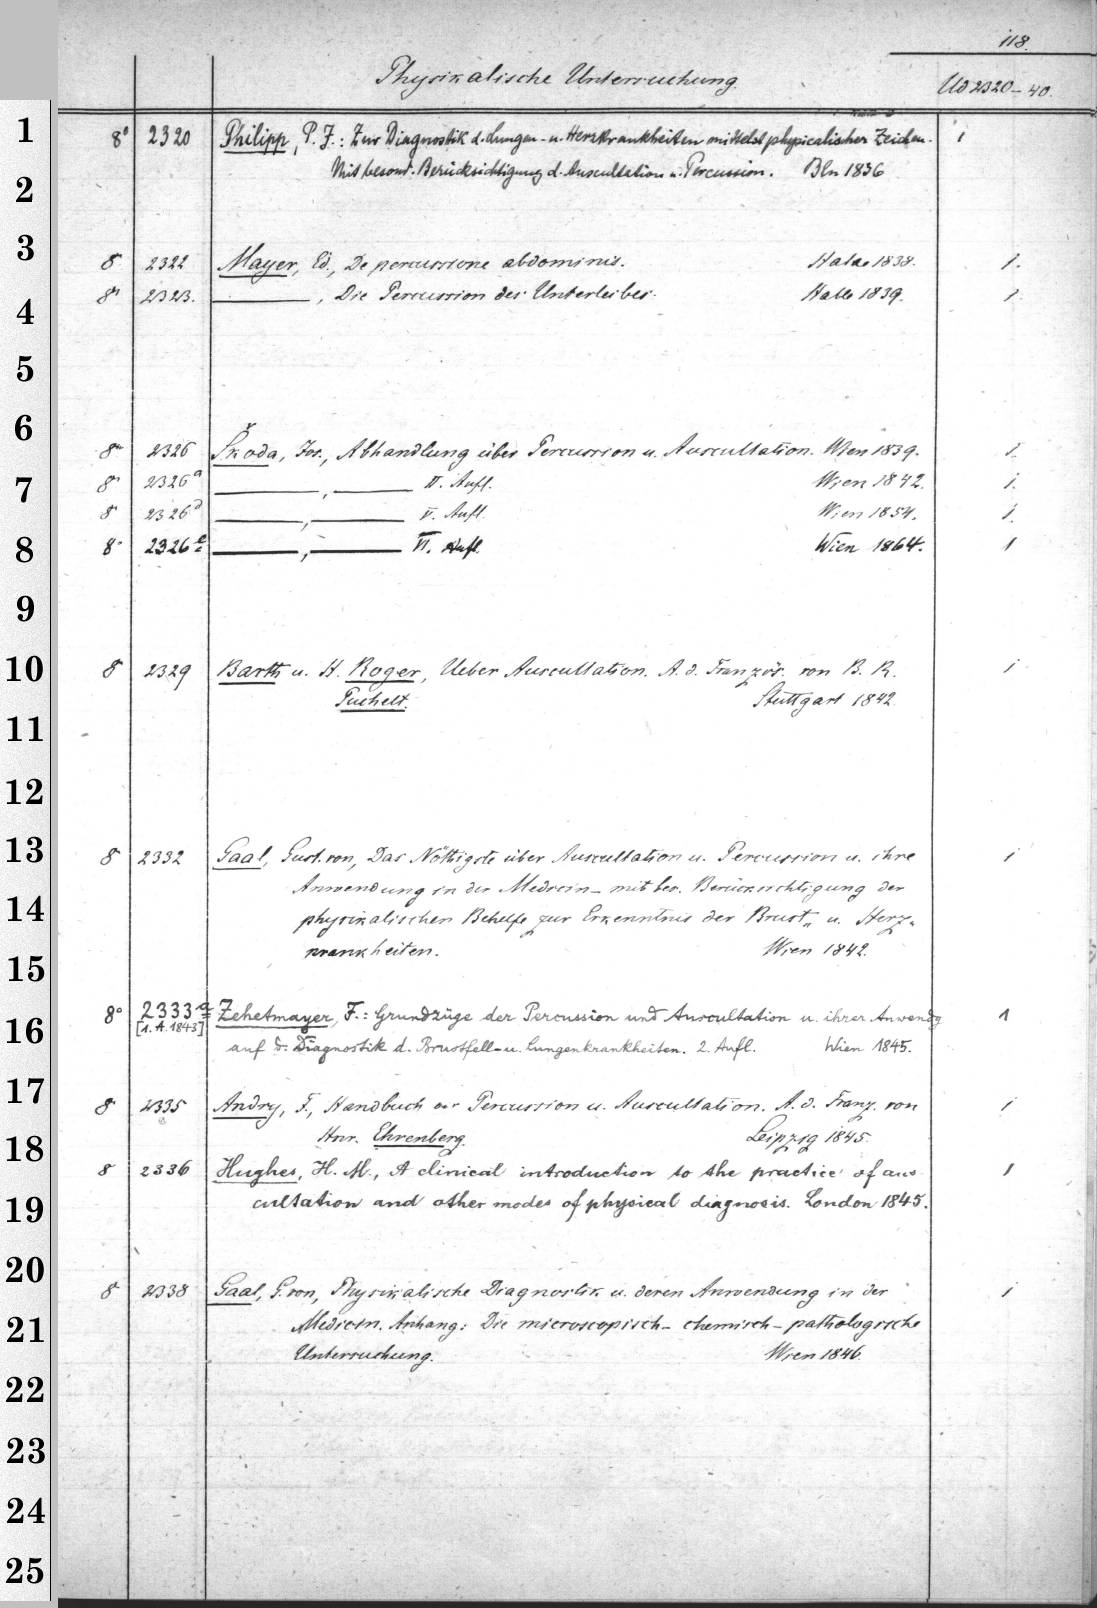 118.
Physikalische Untersuchung.
Ud 2320-40.
1
8° 2320 Philipp, P. J.: Zur Diagnostik d. Lungen- u. Herzkrankheiten mittelst physicalischer Zeichen. 1
2
Mit besond. Berücksichtigung d. Auscultation u. Percussion. Bln 1836
3
8° 2322 Mayer, Ed., De percussione abdominis. Halae 1838. 1.
4
8° 2323. ———, Die Percussion des Unterleibes. Halle 1839. 1
5
6
8° 2326 Škoda, Jos., Abhandlung über Percussion u. Auscultation. Wien 1839. 1.
7
8° 2326a ———, ——— II. Aufl. Wien 1842. 1.
8° 2326d ———, ——— V. Aufl. Wien 1854. 1.
8
8° 2326e ———, ——— VI. Aufl. Wien 1864. 1
9
10
8° 2329 Barth u. H. Roger, Ueber Auscultation. A. d. Französ. von B. R. 1
11
Puchelt. Stuttgart 1842.
12
13
8° 2332 Gaal, Gust. von, Das Nöthigste über Auscultation u. Percussion u. ihre 1
14
Anwendung in der Medicin- mit bes. Berücksichtigung der
physikalischen Behelfe zur Erkenntnis der Brust- u. Herz-
15
krankheiten. Wien 1842.
16
8° 2333a Zehetmayer, F.: Grundzüge der Percussion und Auscultation u. ihrer Anwendg 1
[1. A. 1843] auf d. Diagnostik d. Brustfell- u. Lungenkrankheiten. 2. Aufl. Wien 1845.
17
8° 2335 Andry, F., Handbuch der Percussion u. Auscultation. A. d. Franz. von 1
18
Hnr. Ehrenberg. Leipzig 1845.
8° 2336 Hughes, H. M., A clinical introduction to the practice of aus- 1
19
cultation and other modes of physical diagnosis. London 1845.
20
8° 2338 Gaal, G. von, Physikalische Diagnostik u. deren Anwendung in der 1
21
Medicin. Anhang: Die microscopisch- chemisch- pathologische
Untersuchung. Wien 1846.
22
23
24
25